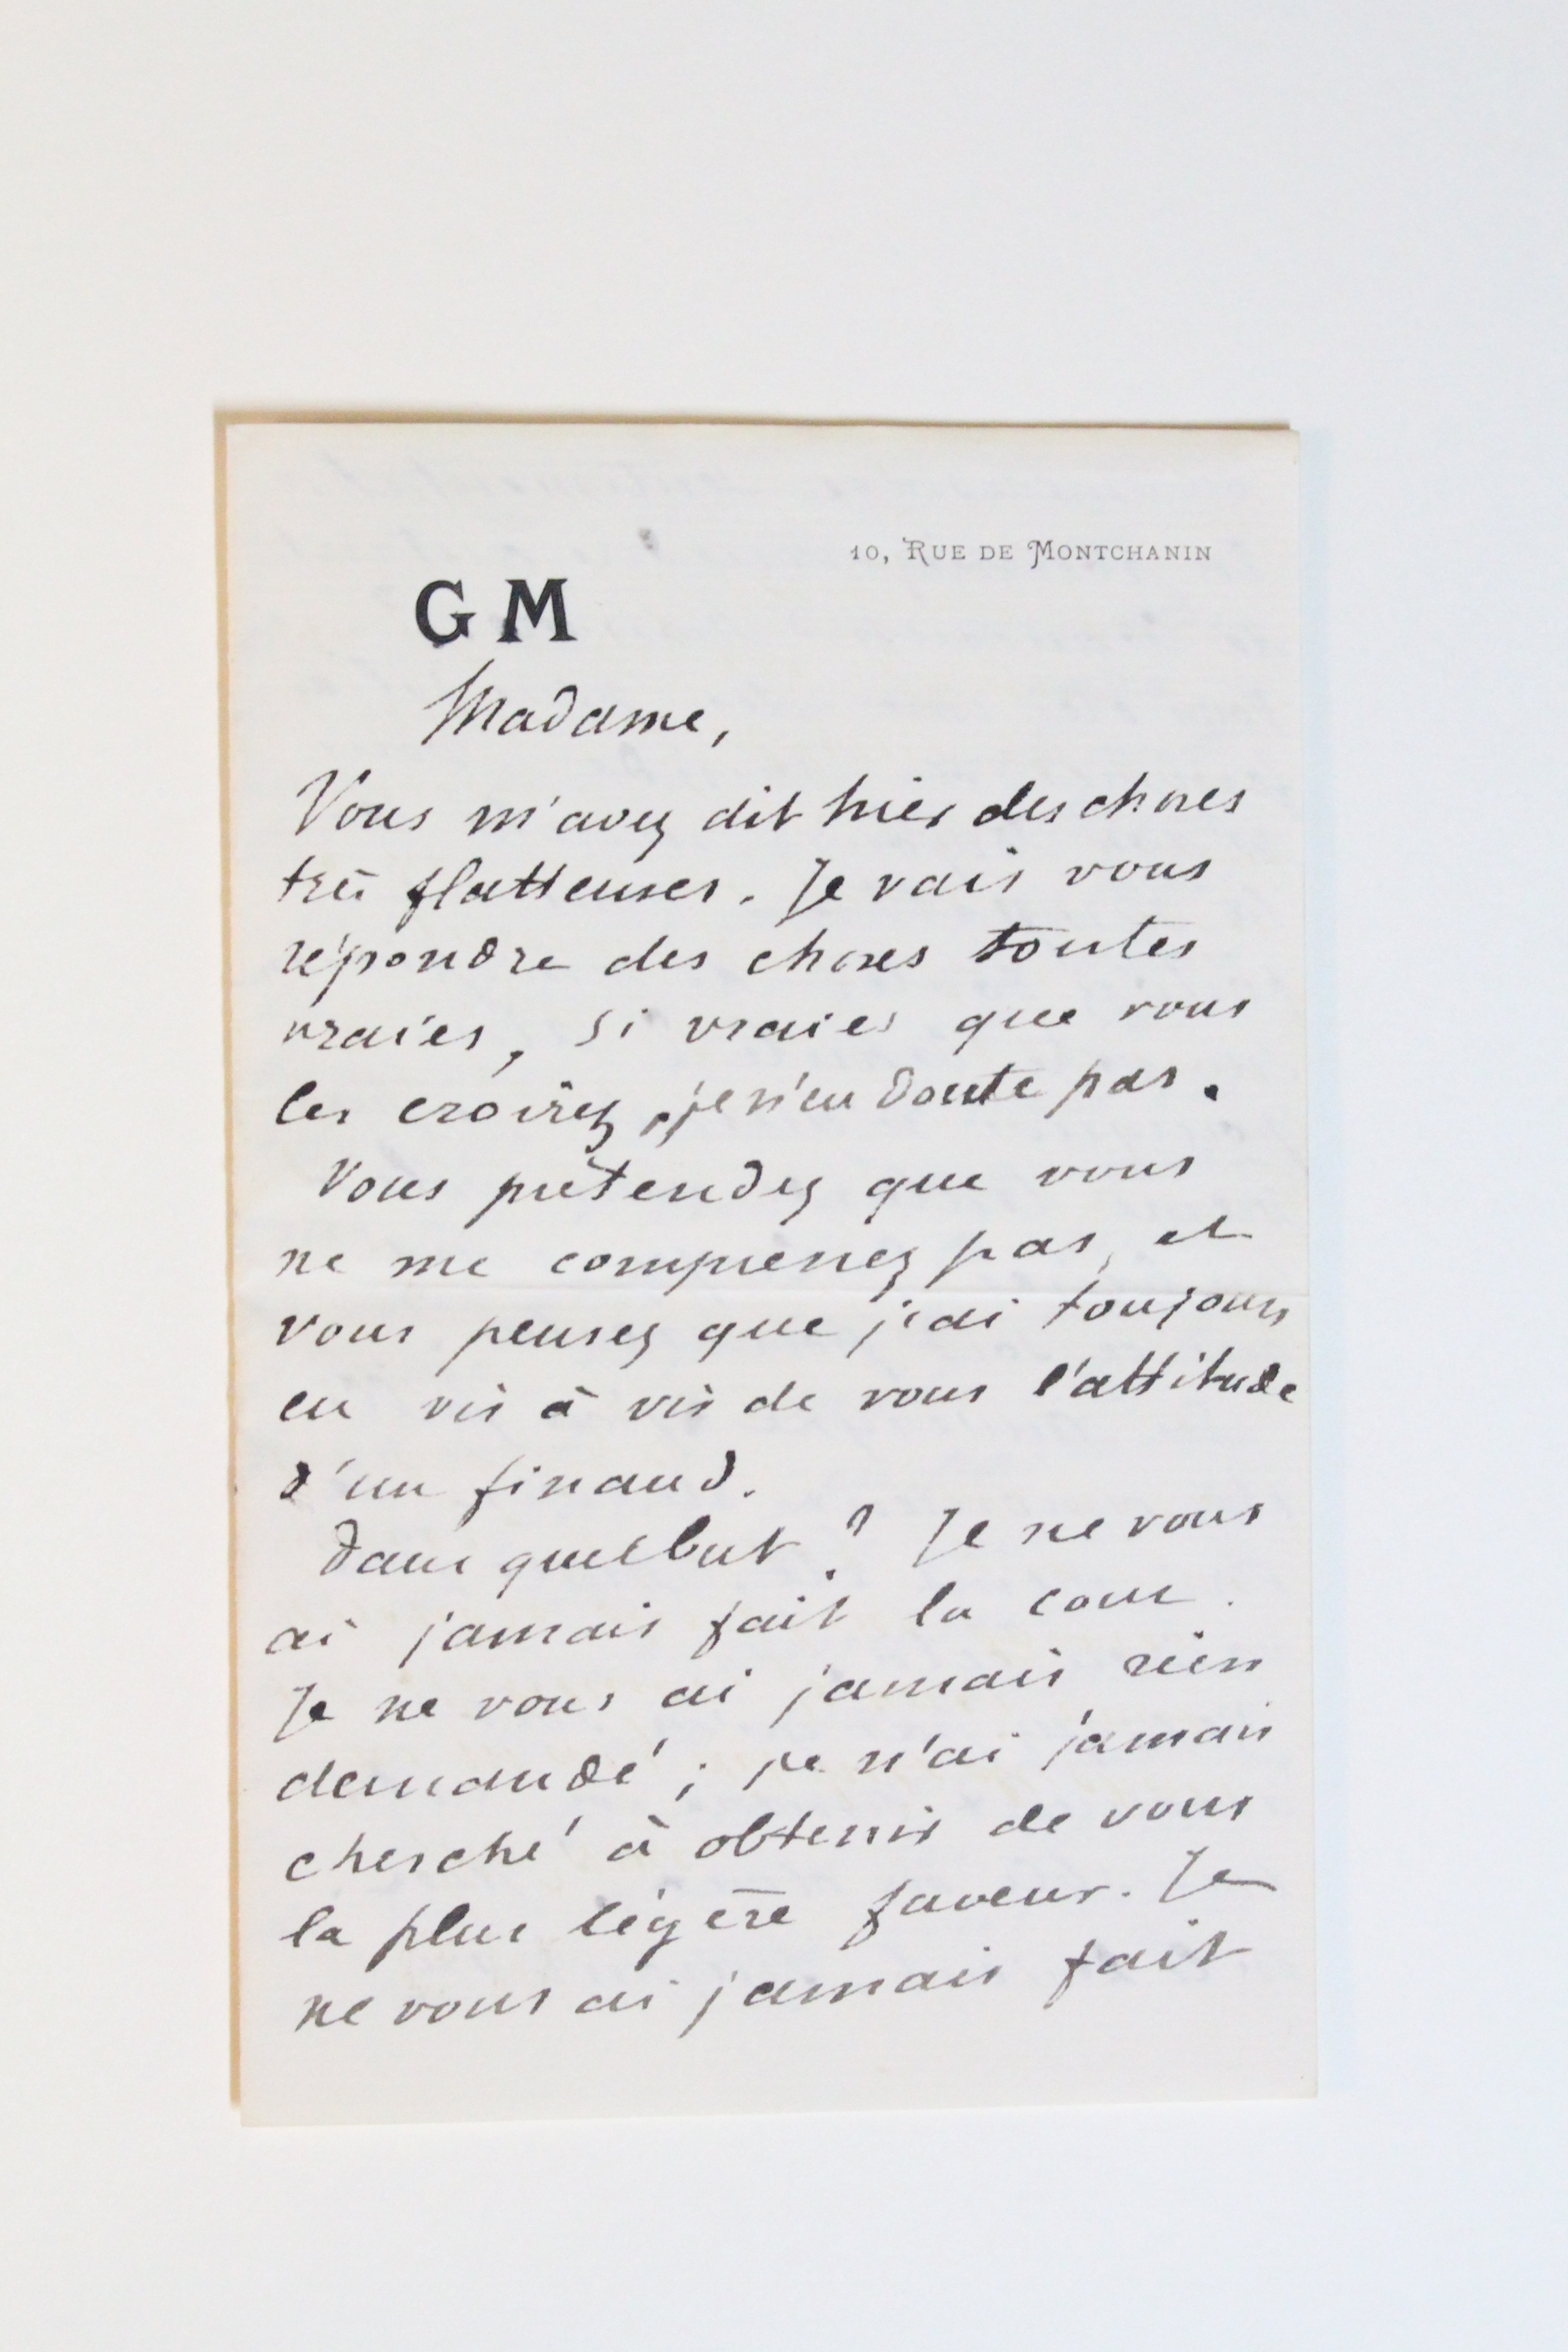 10, RUE DE MONTCHANIN
G M
Madame,
Vous m'avez dit hier des choses
très flatteuses. Je vais vous
répondre des choses toutes
vraies, si vraies que vous
les croirez, je n'en doute pas.
Vous prétendez que vous
ne me comprenez pas, et
vous pensez que j'ai toujours
eu vis à vis de vous l'attitude
d'un finaud.
Dans quel but ? Je ne vous
ai jamais fait la cour.
Je ne vous ai jamais rien
demandé ; je n'ai jamais
cherché à obtenir de vous
la plus légère faveur. Je
ne vous ai jamais fait